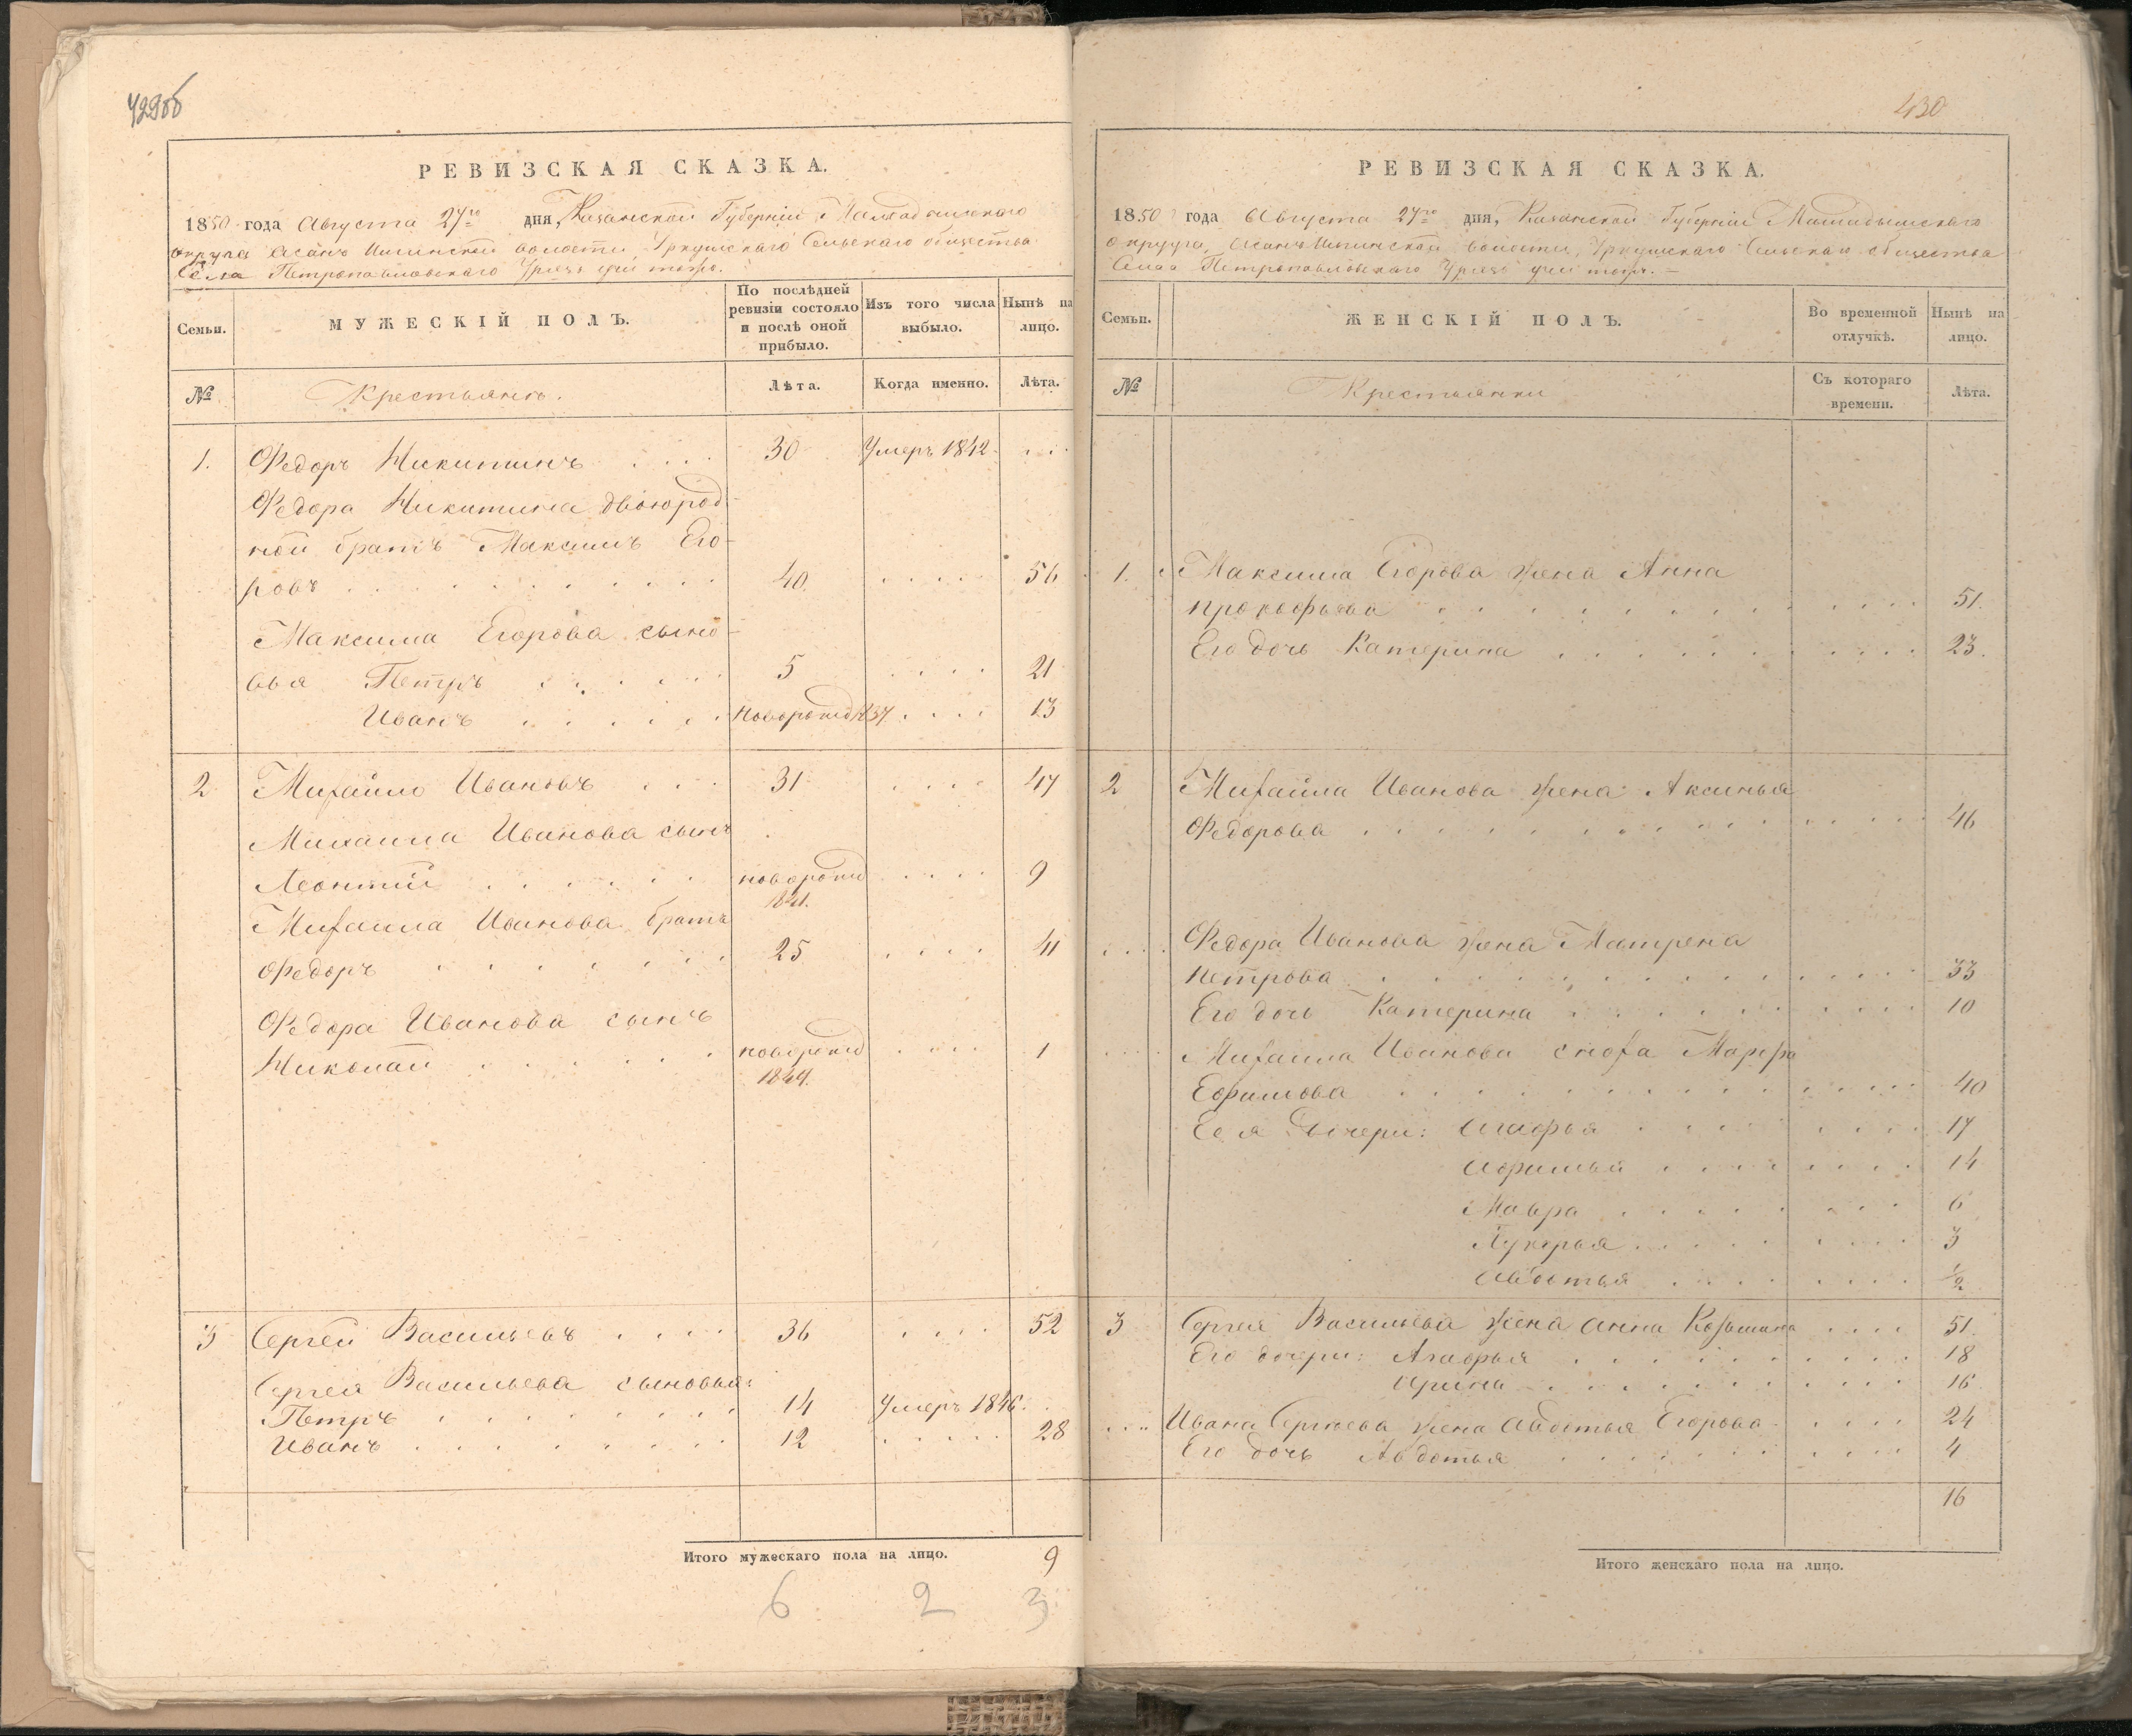 429об
РЕВИЗСКАЯ СКАЗКА.
1850 года Августа 27го дня, Казанской Губерніи Мамадышскаго
округа Асанъ Илгинской волости Уркушскаго Сельскаго общества
Села Петропавловскаго
Семьи.
МУЖЕСКІЙ ПОЛЪ.
По послѣдней ревизіи состояло и послѣ оной прибыло.
Изъ того числа выбыло.
Нынѣ на лицо.
№
Крестьянъ.
Лѣта.
Когда именно.
Лѣта.
1. Федоръ Никитинъ . . . . 30 Умеръ 1842 . . .
Федора Никитина двоюрод
ной братъ Максимъ Его-
ровъ . . . . . . . . . 40. . . . . 56
Максима Егорова сыно-
вья Петръ . . . . . 5 . . . . 21
Иванъ . . . . . новорожд 1837 . . . . 13
2 Михайло Ивановъ . . . 31 . . . . 47
Михаила Иванова сынъ
Леонтій . . . . . . новорожд . . . . 9
1841.
Михаила Иванова братъ
Федоръ . . . . . . . 25 . . . . 41
Федора Иванова сынъ
Николай . . . . . . новорожд . . . . 1
1849.
3 Сергей Васильевъ . . . . 36 . . . . 52
Сергея Васильева сыновья:
Петръ . . . . . . . . 14 Умеръ 1846.
Иванъ . . . . . . . . 12 . . . . . 28
Итого мужескаго пола на лицо. 9
6 2 3
430
РЕВИЗСКАЯ СКАЗКА.
1850 года Августа 27го дня, Казанской Губерніи Мамадышскаго
округа, Асанъ Илгинской волости, Уркушскаго Сельскаго общества
Села Петропавловскаго
Семьи.
ЖЕНСКІЙ ПОЛЪ.
Во временной отлучкѣ.
Нынѣ на лицо.
№
Крестьянки
Съ котораго времени.
Лѣта.
1. Максима Егорова жена Анна
Прокофьева . . . . . . . . . . . . 51.
Его дочь Катерина . . . . . . . . . . 23.
2 Михайла Иванова жена Аксинья
Федорова . . . . . . . . . . . . . 46
. . . . Федора Иванова жена Матрена
Петрова . . . . . . . . . . . . . 33
Его дочь Катерина . . . . . . . . . 10
. . . . Михаила Иванова сноха Марфа
Ефимова . . . . . . . . . . . . . 40
Ее я дочери: Агафья . . . . . . . . 17
Афимья . . . . . . . . 14
Мавра . . . . . . . . 6
Лукерья . . . . . . . . 3
Авдотья . . . . . . . . 1/2
3 Сергея Васильева жена Анна Козьмина . . . . 51.
Его дочери: Агафья . . . . . . . . . . 18
Арина . . . . . . . . . . 16
. . . . Ивана Сергѣева жена Авдотья Егорова . . . . . 24
Его дочь Авдотья . . . . . . . . . . 4
16
Итого женскаго пола на лицо.